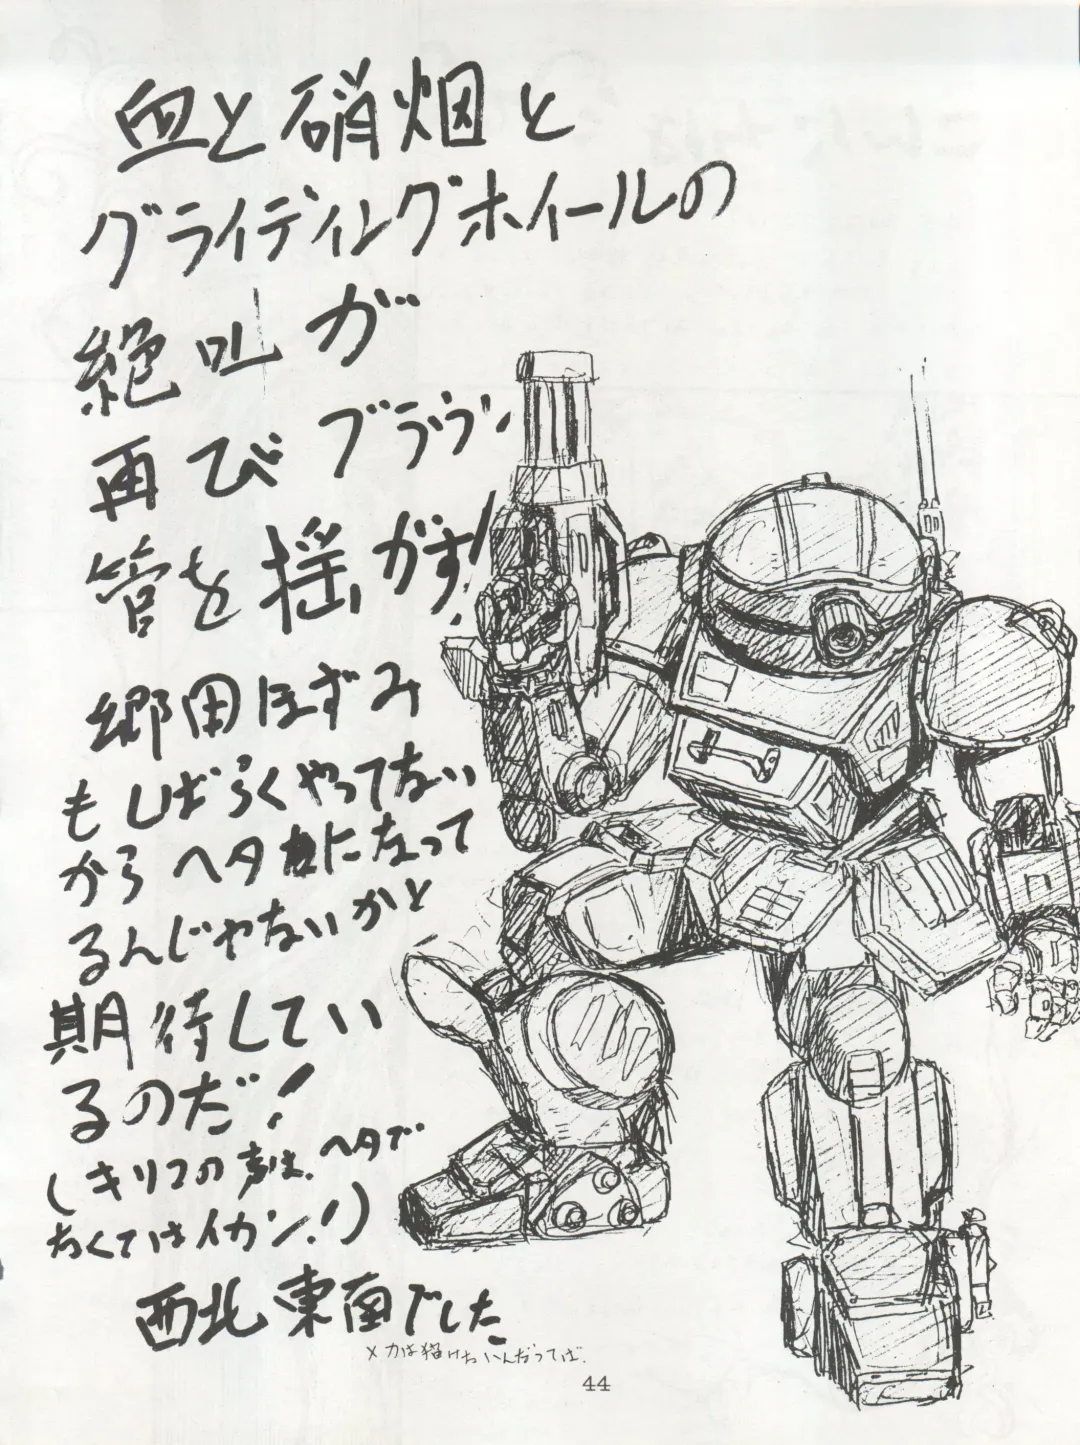 血と硝烟と
グライディングホイールの
絶叫が
再びブラウン
管を揺がす!
郷田ほずみ
もしばらくやってない
から ヘタ に なって
るんじゃないかと
期待してい
るのだ!
(キリコの声は、ヘタで
なくてはイカン!)
西北東南でした
メカは描けないんだってば.
44